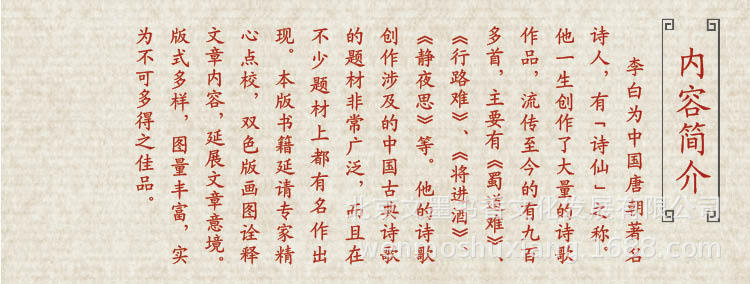 内容简介
李白为中国唐朝著名
诗人，有「诗仙」之称。
他一生创作了大量的诗歌
作品，流传至今的有九百
多首，主要有《蜀道难》、
《行路难》、《将进酒》
《静夜思》等。他的诗歌
创作涉及的中国古典诗歌
的题材非常广泛，而且在
不少题材上都有名作出
现。本版书籍延请专家精
心点校，双色版画图诠释
文章内容，延展文章意境。
版式多样，图量丰富，实
为不可多得之佳品。
北京文墨书香文化发展有限公司
wenmoshuxiang.1688.com